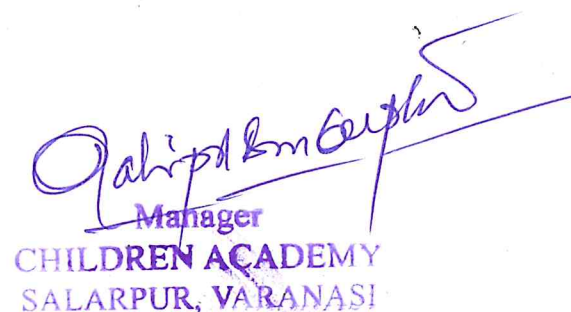 Manager
CHILDREN ACADEMY
SALARPUR, VARANASI